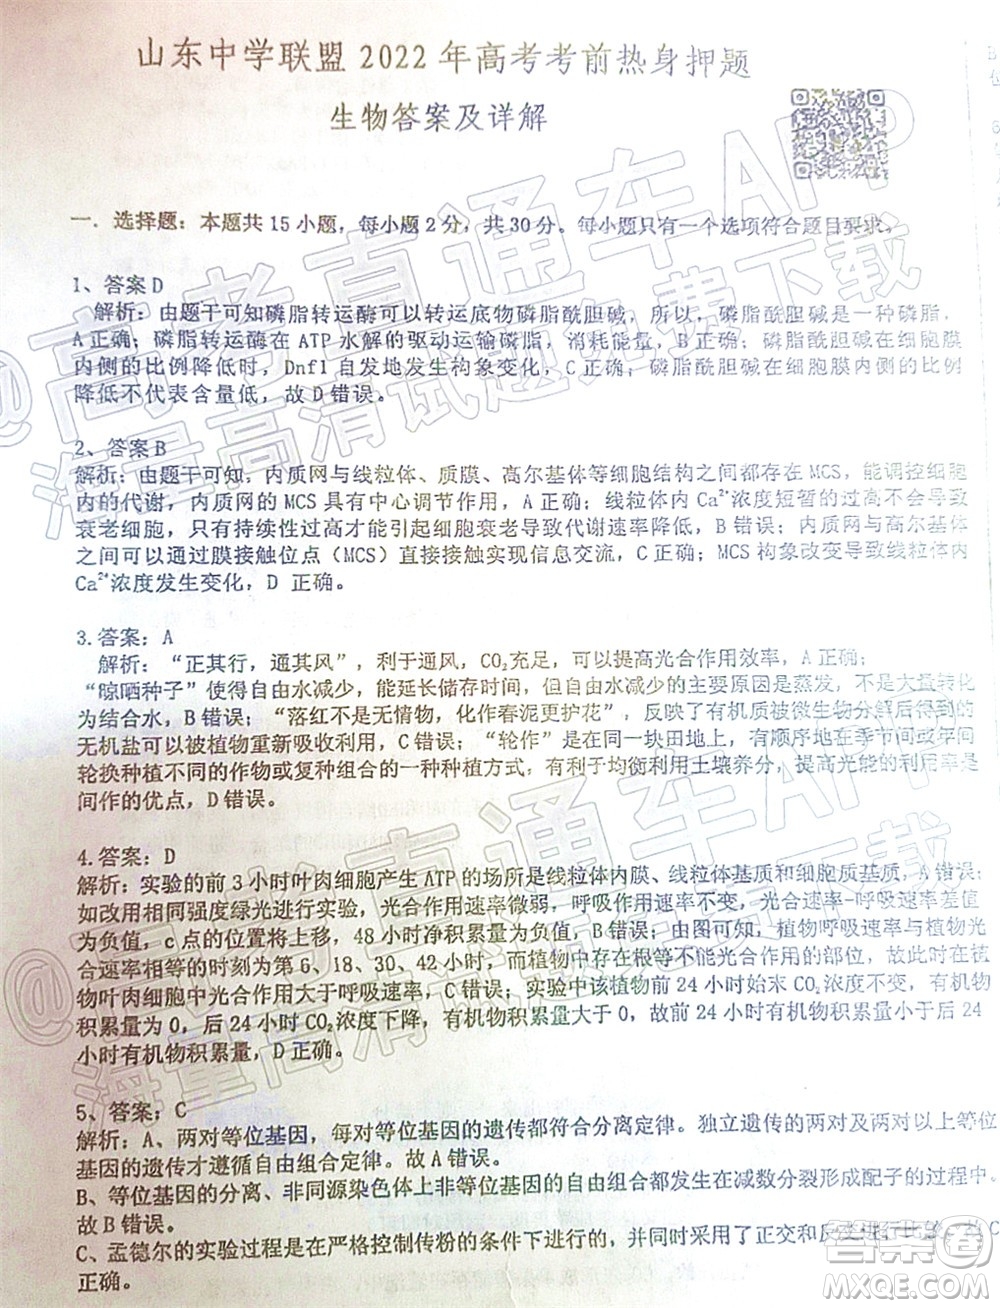 山东中学联盟 2022 年高考考前热身押题
生物答案及详解
一. 选择题：本题共 15 小题，每小题 2 分，共 30 分。每小题只有一个选项符合题目要求。
1、答案 D
解析：由题干可知磷脂转运酶可以转运底物磷脂酰胆碱，所以，磷脂酰胆碱是一种磷脂，
A 正确；磷脂转运酶在 ATP 水解的驱动运输磷脂，消耗能量，B 正确；磷脂酰胆碱在细胞膜
内侧的比例降低时，Dnf1 自发地发生构象变化，C 正确；磷脂酰胆碱在细胞膜内侧的比例
降低不代表含量低，故 D 错误。
2、答案 B
解析：由题干可知，内质网与线粒体、质膜、高尔基体等细胞结构之间都存在 MCS，能调控细胞
内的代谢，内质网的 MCS 具有中心调节作用，A 正确；线粒体内 Ca²⁺浓度短暂的过高不会导致
衰老细胞，只有持续性过高才能引起细胞衰老导致代谢速率降低，B 错误；内质网与高尔基体
之间可以通过膜接触位点（MCS）直接接触实现信息交流，C 正确；MCS 构象改变导致线粒体内
Ca²⁺浓度发生变化，D 正确。
3. 答案：A
解析：“正其行，通其风”，利于通风，CO₂充足，可以提高光合作用效率，A 正确；
“晾晒种子”使得自由水减少，能延长储存时间，但自由水减少的主要原因是蒸发，不是大量转化
为结合水，B 错误；“落红不是无情物，化作春泥更护花”，反映了有机质被微生物分解后得到的
无机盐可以被植物重新吸收利用，C 错误；“轮作”是指在同一块田地上，有顺序地在季节间或年间
轮换种植不同的作物或复种组合的一种种植方式；有利于均衡利用土壤养分，提高光能的利用率是
间作的优点，D 错误。
4. 答案：D
解析：实验的前 3 小时叶肉细胞产生 ATP 的场所是线粒体内膜、线粒体基质和细胞质基质，A 错误；
如改用相同强度绿光进行实验，光合作用速率微弱，呼吸作用速率不变，光合速率-呼吸速率差值
为负值，c 点的位置将上移，48 小时净积累量为负值，B 错误；由图可知，植物呼吸速率与植物光
合速率相等的时刻为第 6、18、30、42 小时，而植物中存在根等不能光合作用的部位，故此时在植
物叶肉细胞中光合作用大于呼吸速率，C 错误；实验中该植物前 24 小时始末 CO₂浓度不变，有机物
积累量为 0，后 24 小时 CO₂浓度下降，有机物积累量大于 0，故前 24 小时有机物积累量小于后 24
小时有机物积累量，D 正确。
5、答案：C
解析：A、两对等位基因，每对等位基因的遗传都符合分离定律。独立遗传的两对及两对以上等位
基因的遗传才遵循自由组合定律。故 A 错误。
B、等位基因的分离、非同源染色体上非等位基因的自由组合都发生在减数分裂形成配子的过程中。
故 B 错误。
C、孟德尔的实验都是在严格控制传粉的条件下进行的，并同时采用了正交和反交进行比较，故 C
正确。
@高考直通车APP
海量高清试题免费下载
@高考直通车APP
海量高清试题免费下载
答案圈
MXQE.COM